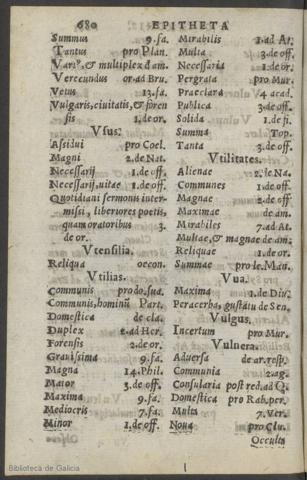 680 EPITHETA
Summus 9. fa.
Tantus pro Plan.
Vari⁹, & multiplex d am.
Verecundus or. ad Bru.
Vetus 13. fa.
Vulgaris, ciuitatis, & foren
sis 1. de or.
Vsus.
Assidui pro Coel.
Magni 2. de Nat.
Necessarij 1. de off.
Necessarij, uitae 1. de off.
Quotidiani sermonis inter-
missi, liberiores poetis,
quam oratoribus 3.
de or.
Vtensilia.
Reliqua oecon.
Vtilias.
Communis pro do. sua.
Communis, hominũ Part.
Domestica de cla.
Duplex 2. ad Her.
Forensis 2. de or.
Grauissima 9. fa.
Magna 14. Phil.
Maior 3. de off.
Maxima 9. fa.
Mediocris 7. fa.
Minor 1. de off.
Mirabilis 1. ad At.
Multa 3. de off.
Necessaria 1. de or.
Pergrata pro Mur.
Praeclara 4. acad.
Publica 3. de off.
Solida 1. de fi.
Summa Top.
Tanta 3. de off.
Vtilitates.
Alienae 2. de Na.
Communes 1. de off.
Magnae 2. de off.
Maximae de am.
Mirabiles 7. ad At.
Multae, & magnae de am.
Reliquae 1. de or.
Summae pro le. Man.
Vua.
Maxima 1. de Diu.
Peracerba, gustatu de Sen.
Vulgus.
Incertum pro Mur.
Vulnera.
Aduersa de ar. resp.
Communia 2. ag.
Consularia post red. ad Q.
Domestica pro Rab. per.
Multa 7. Ver.
Noua pro Clu.
Occulta
Biblioteca de Galicia